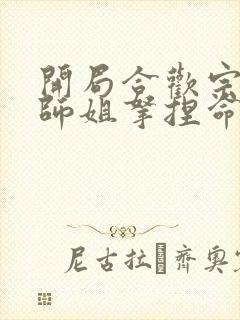 開局合歡宗
師姐拏捏命
尼古拉齊奧